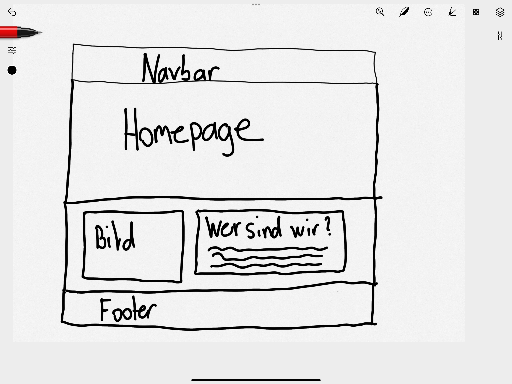 Navbar
Homepage
Bild
Wer sind wir?
Footer